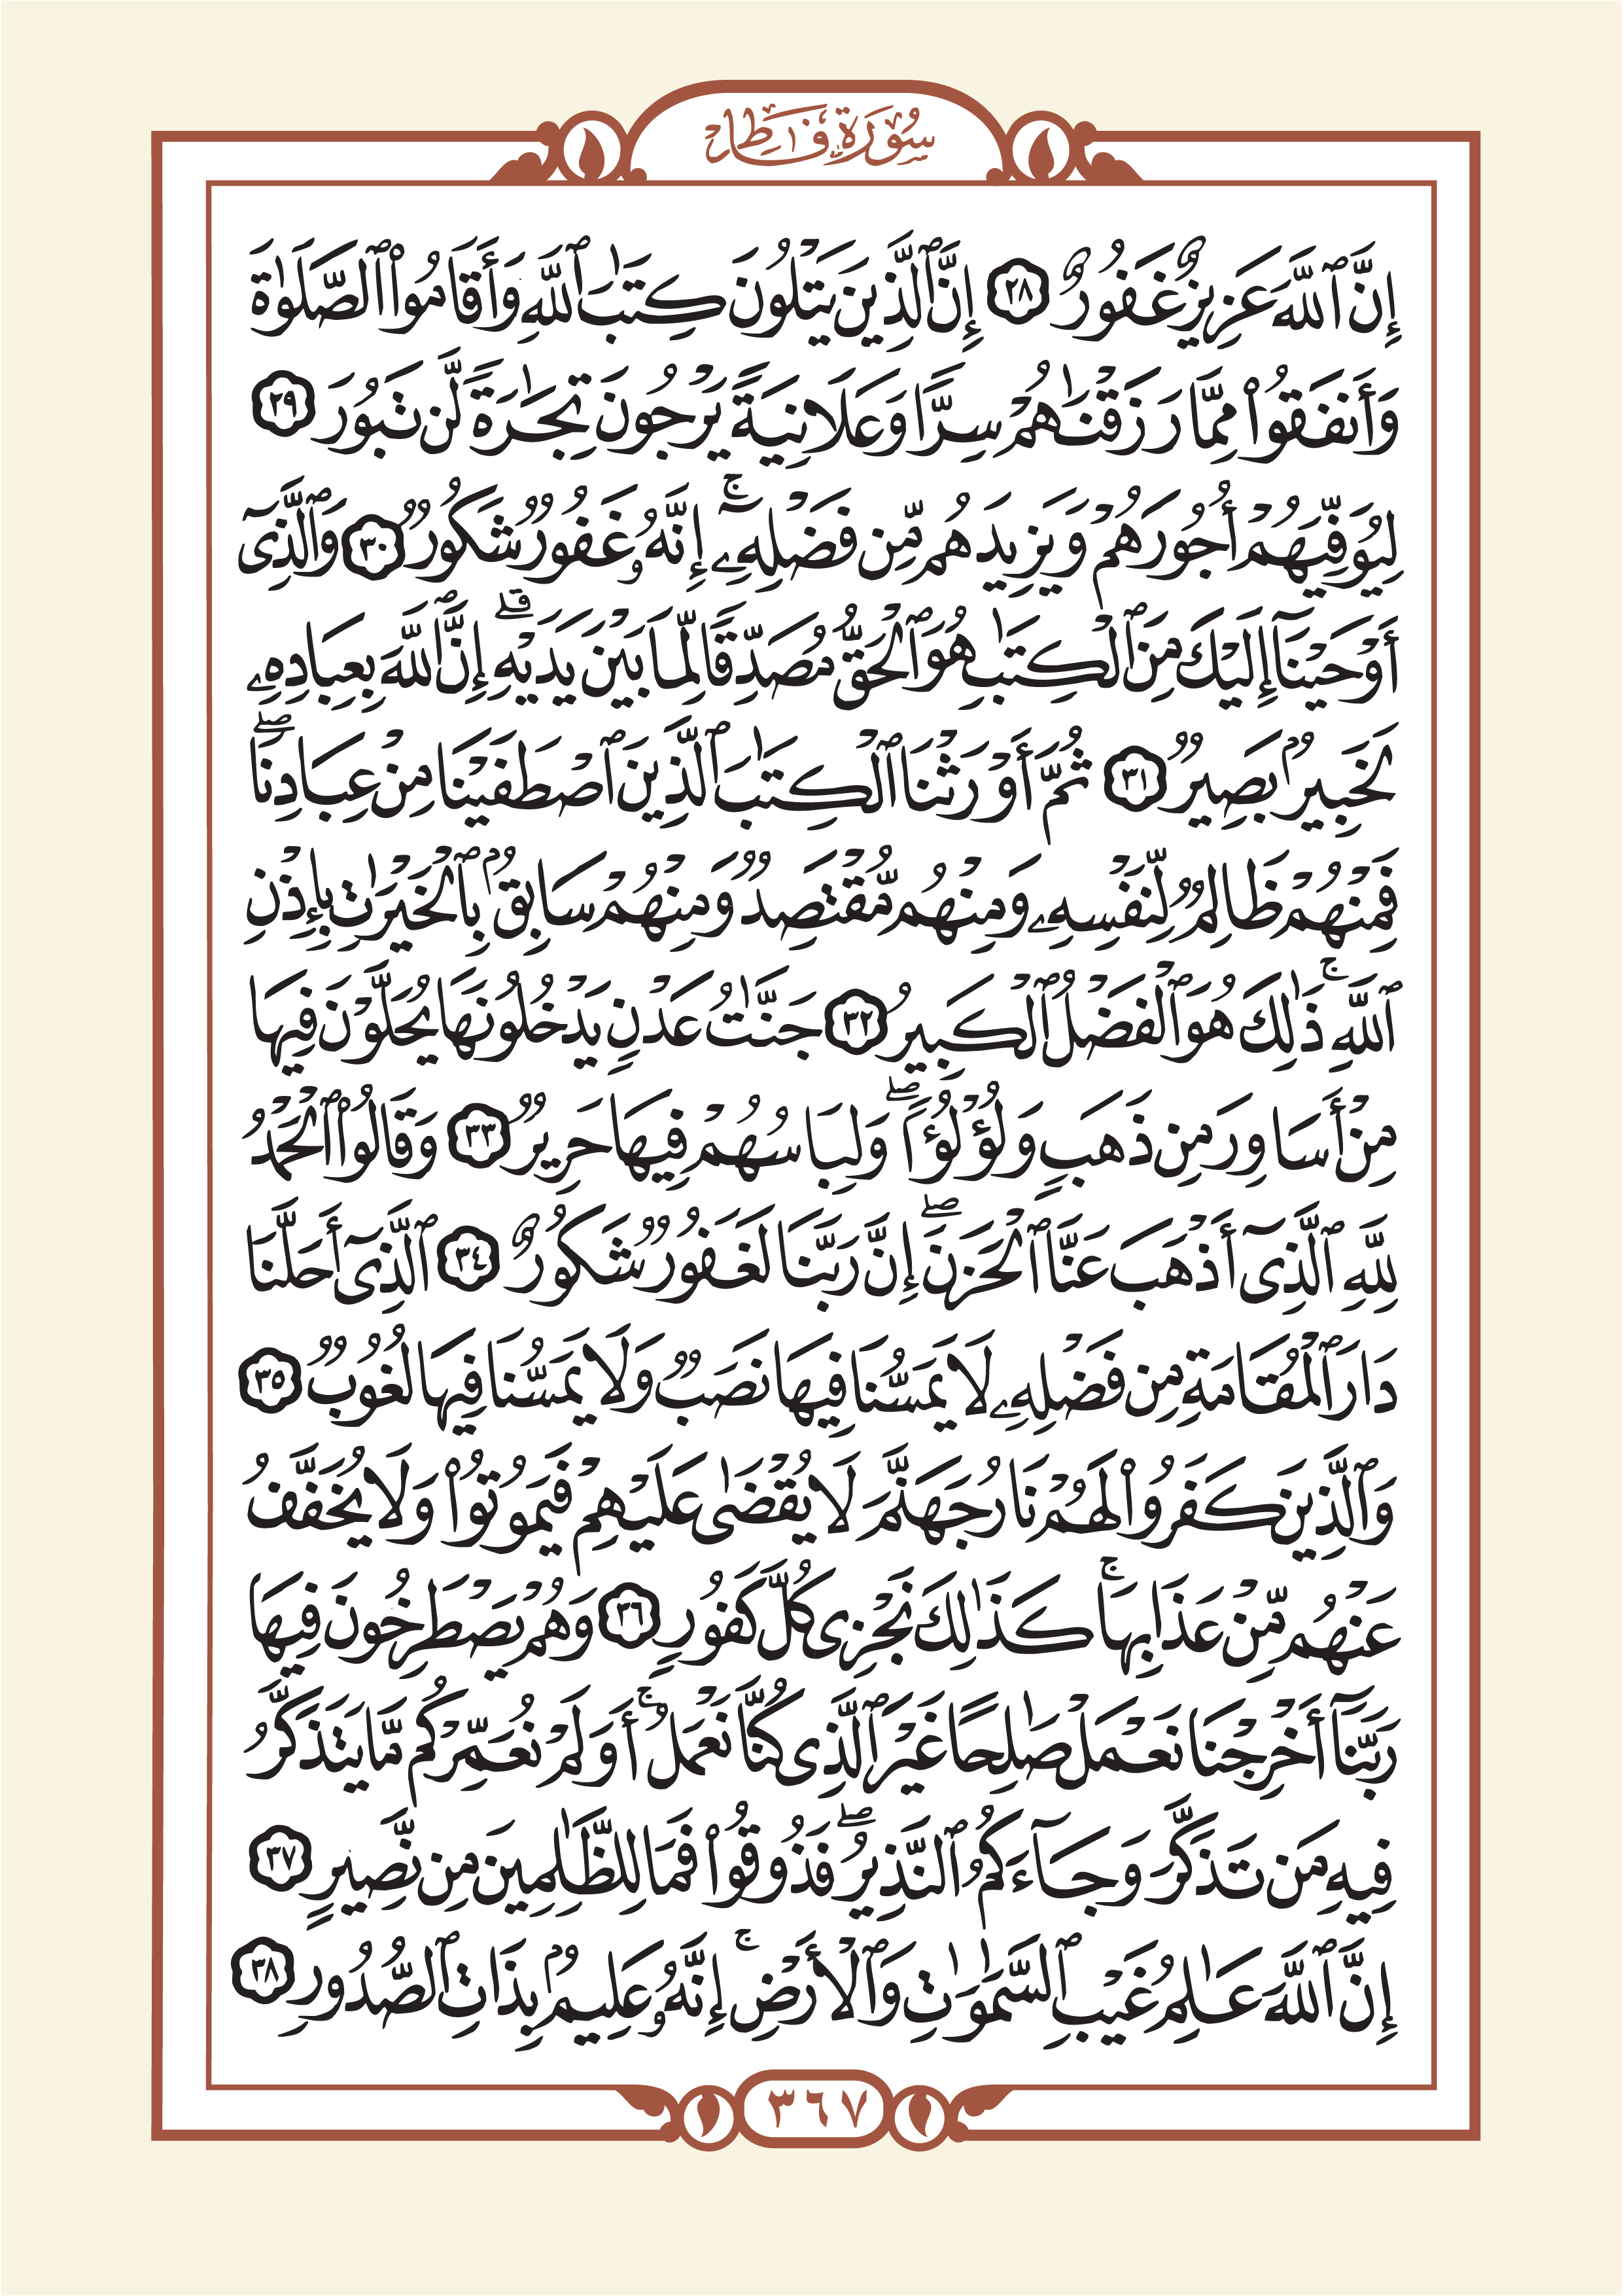 سُورَةُ فَاطِرٍ
إِنَّ ٱللَّهَ عَزِيزٌ غَفُورٌ ٢٨ إِنَّ ٱلَّذِينَ يَتْلُونَ كِتَٰبَ ٱللَّهِ وَأَقَامُوا۟ ٱلصَّلَوٰةَ
وَأَنفَقُوا۟ مِمَّا رَزَقْنَٰهُمْ سِرًّا وَعَلَانِيَةً يَرْجُونَ تِجَٰرَةً لَّن تَبُورَ ٢٩
لِيُوَفِّيَهُمْ أُجُورَهُمْ وَيَزِيدَهُم مِّن فَضْلِهِۦٓ ۚ إِنَّهُۥ غَفُورٌ شَكُورٌ ٣٠ وَٱلَّذِىٓ
أَوْحَيْنَآ إِلَيْكَ مِنَ ٱلْكِتَٰبِ هُوَ ٱلْحَقُّ مُصَدِّقًا لِّمَا بَيْنَ يَدَيْهِ ۗ إِنَّ ٱللَّهَ بِعِبَادِهِۦ
لَخَبِيرٌۢ بَصِيرٌ ٣١ ثُمَّ أَوْرَثْنَا ٱلْكِتَٰبَ ٱلَّذِينَ ٱصْطَفَيْنَا مِنْ عِبَادِنَا ۖ
فَمِنْهُمْ ظَالِمٌ لِّنَفْسِهِۦ وَمِنْهُم مُّقْتَصِدٌ وَمِنْهُمْ سَابِقٌۢ بِٱلْخَيْرَٰتِ بِإِذْنِ
ٱللَّهِ ۚ ذَٰلِكَ هُوَ ٱلْفَضْلُ ٱلْكَبِيرُ ٣٢ جَنَّٰتُ عَدْنٍ يَدْخُلُونَهَا يُحَلَّوْنَ فِيهَا
مِنْ أَسَاوِرَ مِن ذَهَبٍ وَلُؤْلُؤًا ۖ وَلِبَاسُهُمْ فِيهَا حَرِيرٌ ٣٣ وَقَالُوا۟ ٱلْحَمْدُ
لِلَّهِ ٱلَّذِىٓ أَذْهَبَ عَنَّا ٱلْحَزَنَ ۖ إِنَّ رَبَّنَا لَغَفُورٌ شَكُورٌ ٣٤ ٱلَّذِىٓ أَحَلَّنَا
دَارَ ٱلْمُقَامَةِ مِن فَضْلِهِۦ لَا يَمَسُّنَا فِيهَا نَصَبٌ وَلَا يَمَسُّنَا فِيهَا لُغُوبٌ ٣٥
وَٱلَّذِينَ كَفَرُوا۟ لَهُمْ نَارُ جَهَنَّمَ لَا يُقْضَىٰ عَلَيْهِمْ فَيَمُوتُوا۟ وَلَا يُخَفَّفُ
عَنْهُم مِّنْ عَذَابِهَا ۚ كَذَٰلِكَ نَجْزِى كُلَّ كَفُورٍ ٣٦ وَهُمْ يَصْطَرِخُونَ فِيهَا
رَبَّنَآ أَخْرِجْنَا نَعْمَلْ صَٰلِحًا غَيْرَ ٱلَّذِى كُنَّا نَعْمَلُ ۚ أَوَلَمْ نُعَمِّرْكُم مَّا يَتَذَكَّرُ
فِيهِ مَن تَذَكَّرَ وَجَآءَكُمُ ٱلنَّذِيرُ ۖ فَذُوقُوا۟ فَمَا لِلظَّٰلِمِينَ مِن نَّصِيرٍ ٣٧
إِنَّ ٱللَّهَ عَٰلِمُ غَيْبِ ٱلسَّمَٰوَٰتِ وَٱلْأَرْضِ ۚ إِنَّهُۥ عَلِيمٌۢ بِذَاتِ ٱلصُّدُورِ ٣٨
٣٦٧